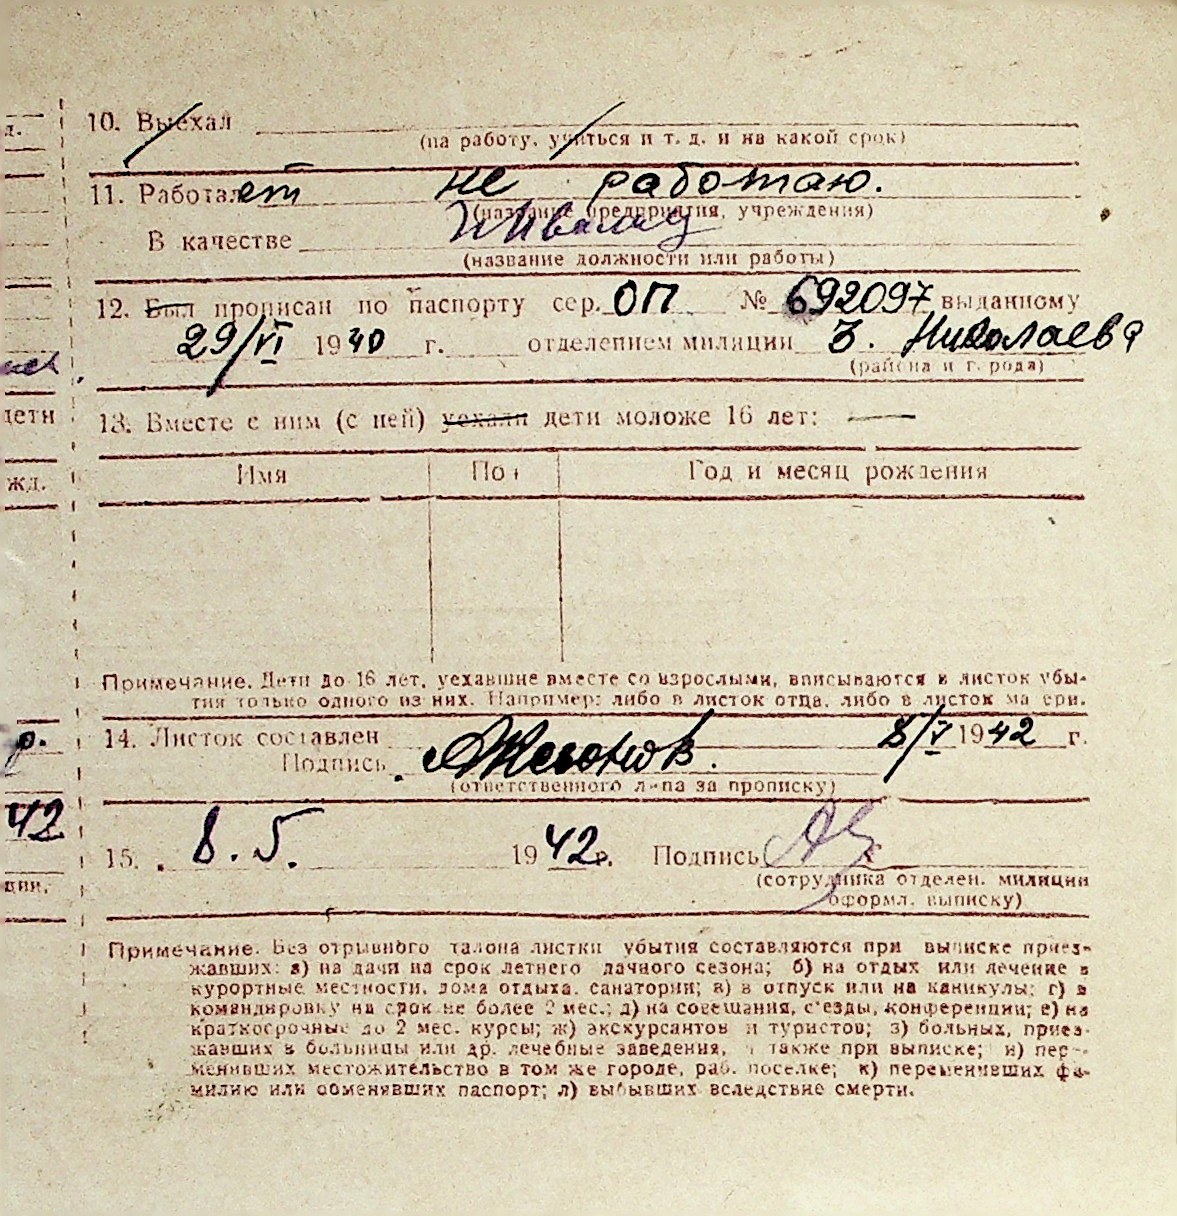 10. Выехал
(на работу, учиться и т. д. и на какой срок)
11. Работает не работаю.
(название предприятия, учреждения)
В качестве
(название должности или работы)
12. Был прописан по паспорту сер. ОП № 692097 выданному
29/VI 1940 г. отделением милиции З. Николаева
(района и города)
13. Вместе с ним (с ней) уехали дети моложе 16 лет: —
дети
Имя Пол Год и месяц рождения
жд.
Примечание. Дети до 16 лет, уехавшие вместе со взрослыми, вписываются в листок убы-
тия только одного из них. Например: либо в листок отца, либо в листок матери.
р.
14. Листок составлен 8/V 1942 г.
Подпись
(ответственного лица за прописку)
42
15. 8. 5. 1942 г. Подпись
(сотрудника отделен. милиции
оформл. выписку)
ции.
Примечание. Без отрывного талона листки убытия составляются при выписке приез-
жавших: а) на дачи на срок летнего дачного сезона; б) на отдых или лечение в
курортные местности, дома отдыха, санатории; в) в отпуск или на каникулы; г) в
командировку на срок не более 2 мес.; д) на совещания, съезды, конференции; е) на
краткосрочные до 2 мес. курсы; ж) экскурсантов и туристов; з) больных, приез-
жавших в больницы или др. лечебные заведения, а также при выписке; и) пере-
менивших местожительство в том же городе, раб. поселке; к) переменивших фа-
милию или обменявших паспорт; л) выбывших вследствие смерти.